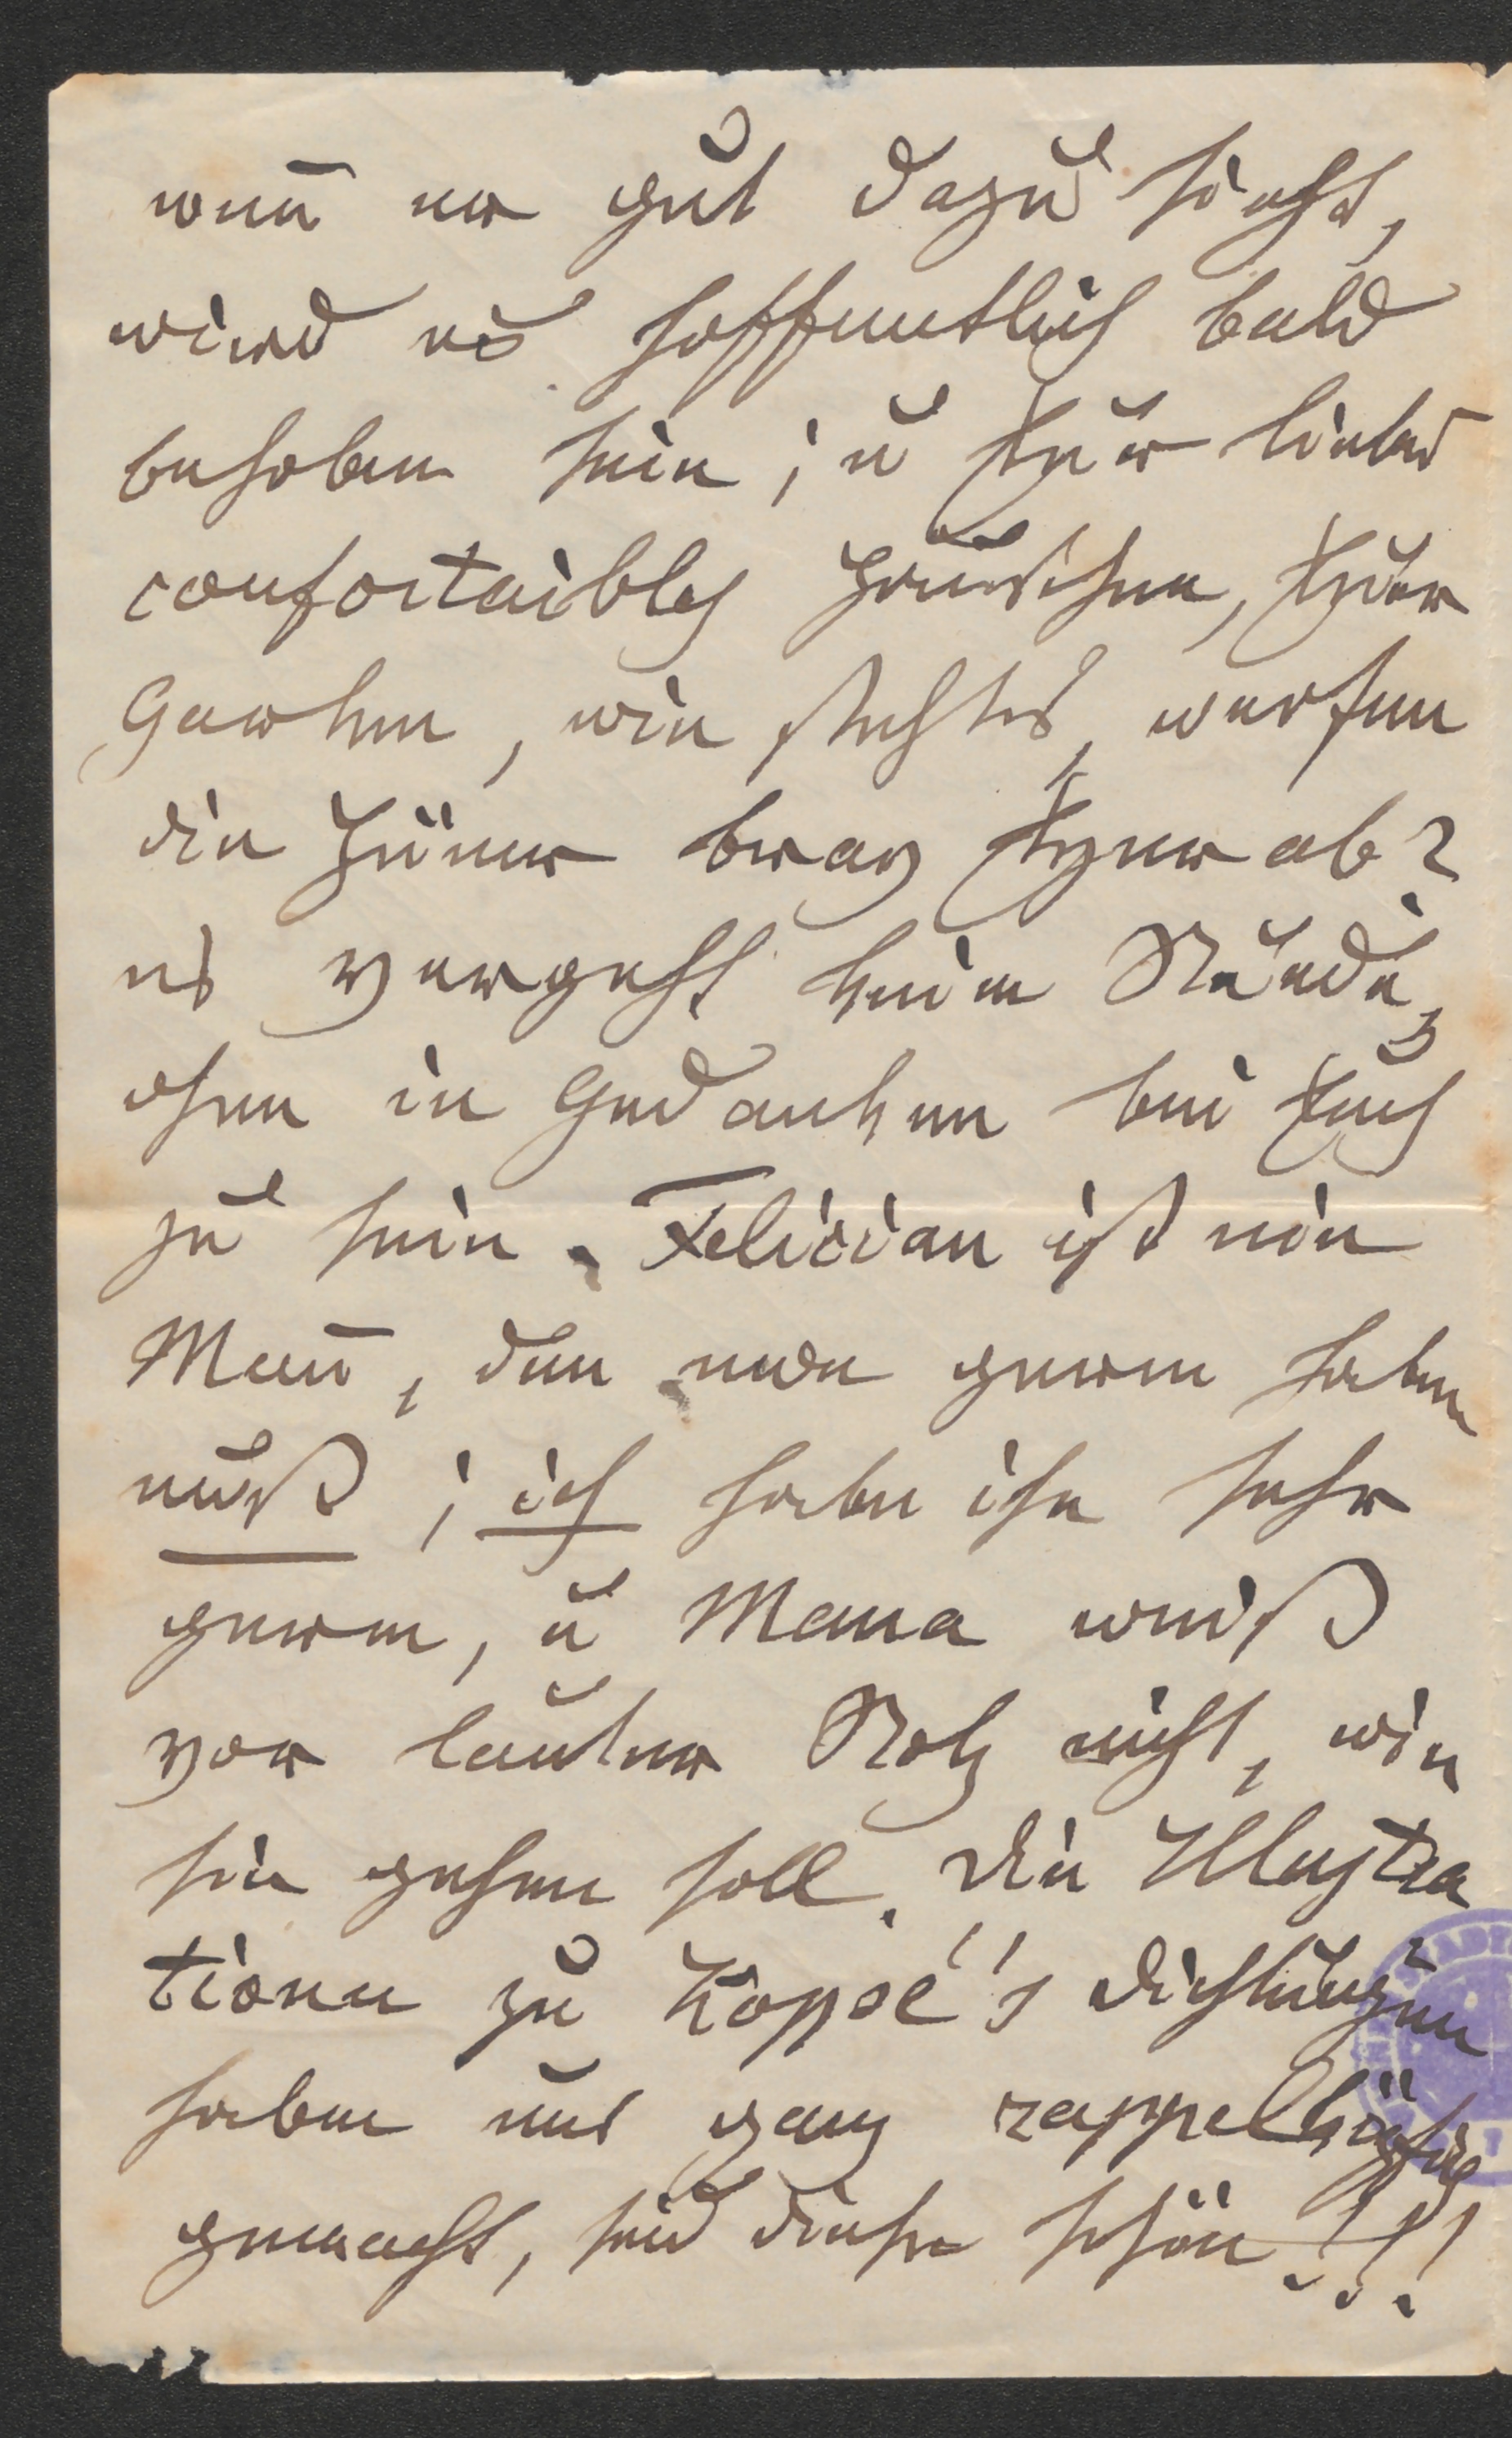 wen̄ er gut dazu sieht,
wird es hoffentlich bald
behoben sein; u Euer liebes
confortaibles Häuschen, Euer
Garten, wie stehts, werfen
die Hüner brav Eyer ab?
es vergeht keine Stunde,
ohne in Gedanken bei Euch
zu sein. Felician ist ein
Man̄, den man gerne haben
muß; ich habe ihn sehr
gerne, u Mama weiß
vor lauter Stolz nicht, wie
sie gehen soll. Die Illustra
tionen zu Koppeé's Dichtungen
haben uns ganz rappelköpfig
gemacht, sind diese schön!!!